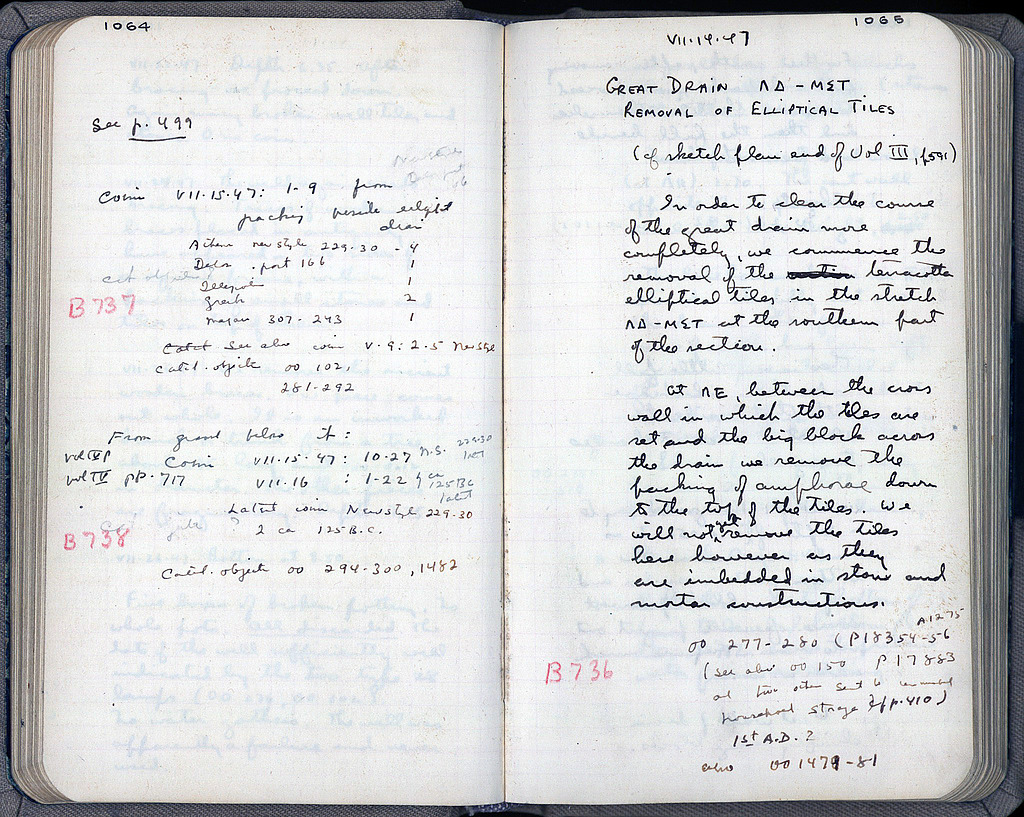 1064
See p. 499
Coins VII.15.47: 1-9 from
packing beside elliptical
drain
Athens new style 229-30 - 4
Delos . post 166 1
Illegible 1
Greek 2
Megara 307-243 1
B 737
Catal. See also coin V.9: 2.5 New Style
Catal. objects OO 102,
281-292
From gravel below it:
vol IV p Coins VII.15.47: 10-27 N.S. 229-30
vol IV pp. 717 VII.16 : 1-22 ca 125 B.C.
latest
Latest coin New style 229-30
2 ca 125 B.C.
B 738
Catal. objects OO 294-300, 1482
1065
VII.14.47
GREAT DRAIN ΛΔ-ΜΣΤ
REMOVAL OF ELLIPTICAL TILES
(cf sketch plan end of Vol III, p591)
In order to clear the course
of the great drain more
completely, we commence the
removal of the terracotta
elliptical tiles in the stretch
ΛΔ-ΜΣΤ at the southern part
of the section.
At ΛΕ, between the cross
wall in which the tiles are
set and the big block across
the drain we remove the
packing of amphorae down
to the top of the tiles. We
will not yet remove the tiles
here however as they
are imbedded in stone and
mortar constructions.
OO 277-280 (P18354-56
A1275
B 736
(see also OO 150 P17883
and two other sent to
household storage cf p. 410)
1st A.D. ?
also OO 1479-81